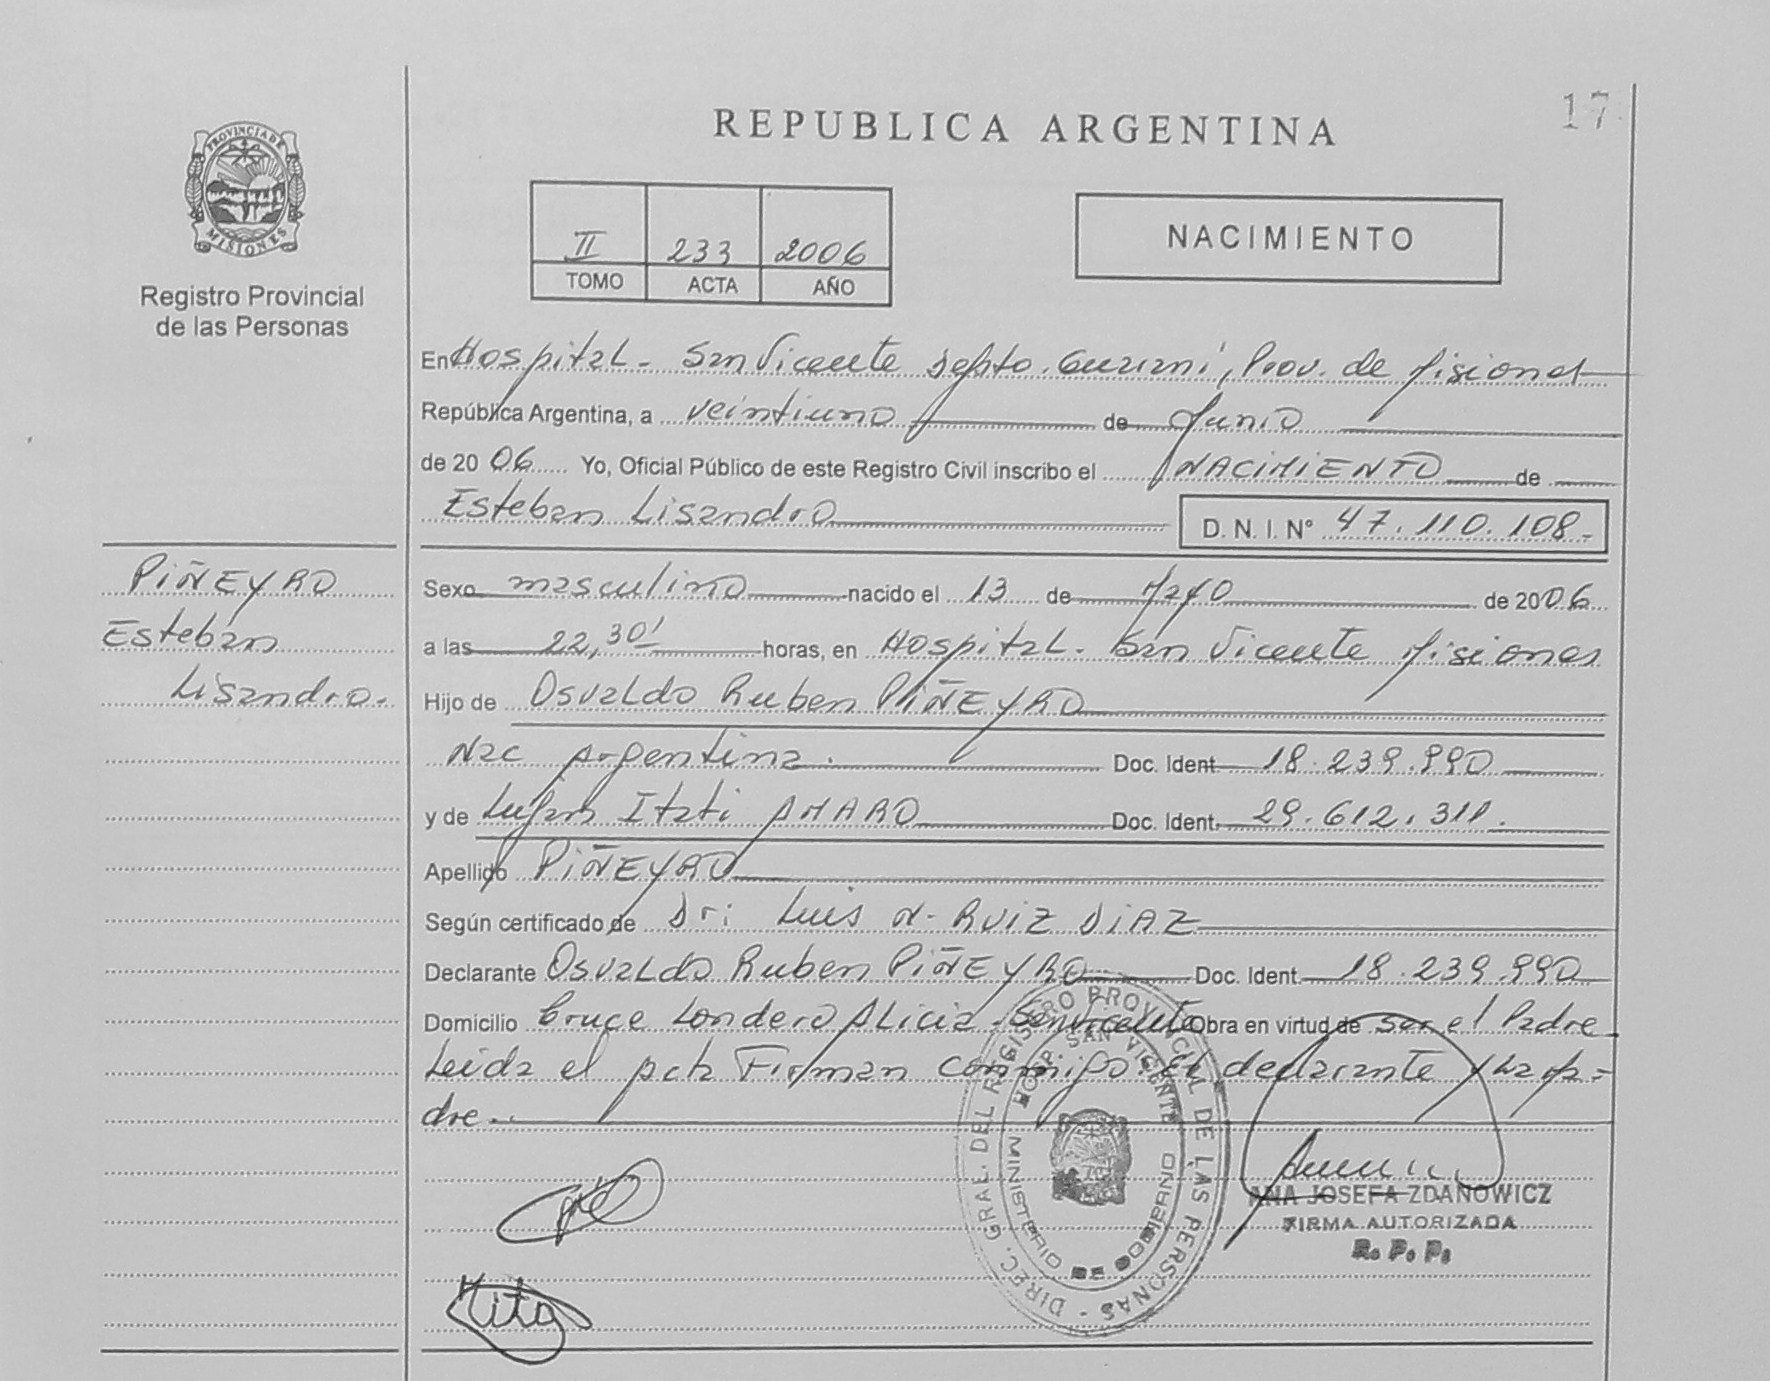 17
REPUBLICA ARGENTINA
PROVINCIA DE
MISIONES
Registro Provincial
de las Personas
II 233 2006
TOMO ACTA AÑO
NACIMIENTO
En Hospital - San Vicente Depto. Guarani, Prov. de Misiones
República Argentina, a veintiuno de Junio
de 2006 Yo, Oficial Público de este Registro Civil inscribo el NACIMIENTO de
Esteban Lisandro D. N. I. N° 47.110.108.-
PIÑEYRO
Esteban
Lisandro.
Sexo masculino nacido el 13 de Mayo de 2006
a las 22,30' horas, en Hospital - San Vicente Misiones
Hijo de Osvaldo Ruben PIÑEYRO
Nac Argentina. Doc. Ident. 18.239.990
y de Lujan Itati AMARO Doc. Ident. 29.612.311.
Apellido PIÑEYRO
Según certificado de Dr: Luis N. RUIZ DIAZ
Declarante Osvaldo Ruben PIÑEYRO Doc. Ident. 18.239.990
Domicilio Cruce Londero Alicia - San Vicente Obra en virtud de ser el Padre
Leida el acta Firman conmigo el declarante y la ma-
dre.-
DIREC. GRAL. DEL REGISTRO PROVINCIAL DE LAS PERSONAS -
HOSP. SAN VICENTE
MINISTERIO DE GOBIERNO
ANA JOSEFA ZDANOWICZ
FIRMA AUTORIZADA
R. P. P.